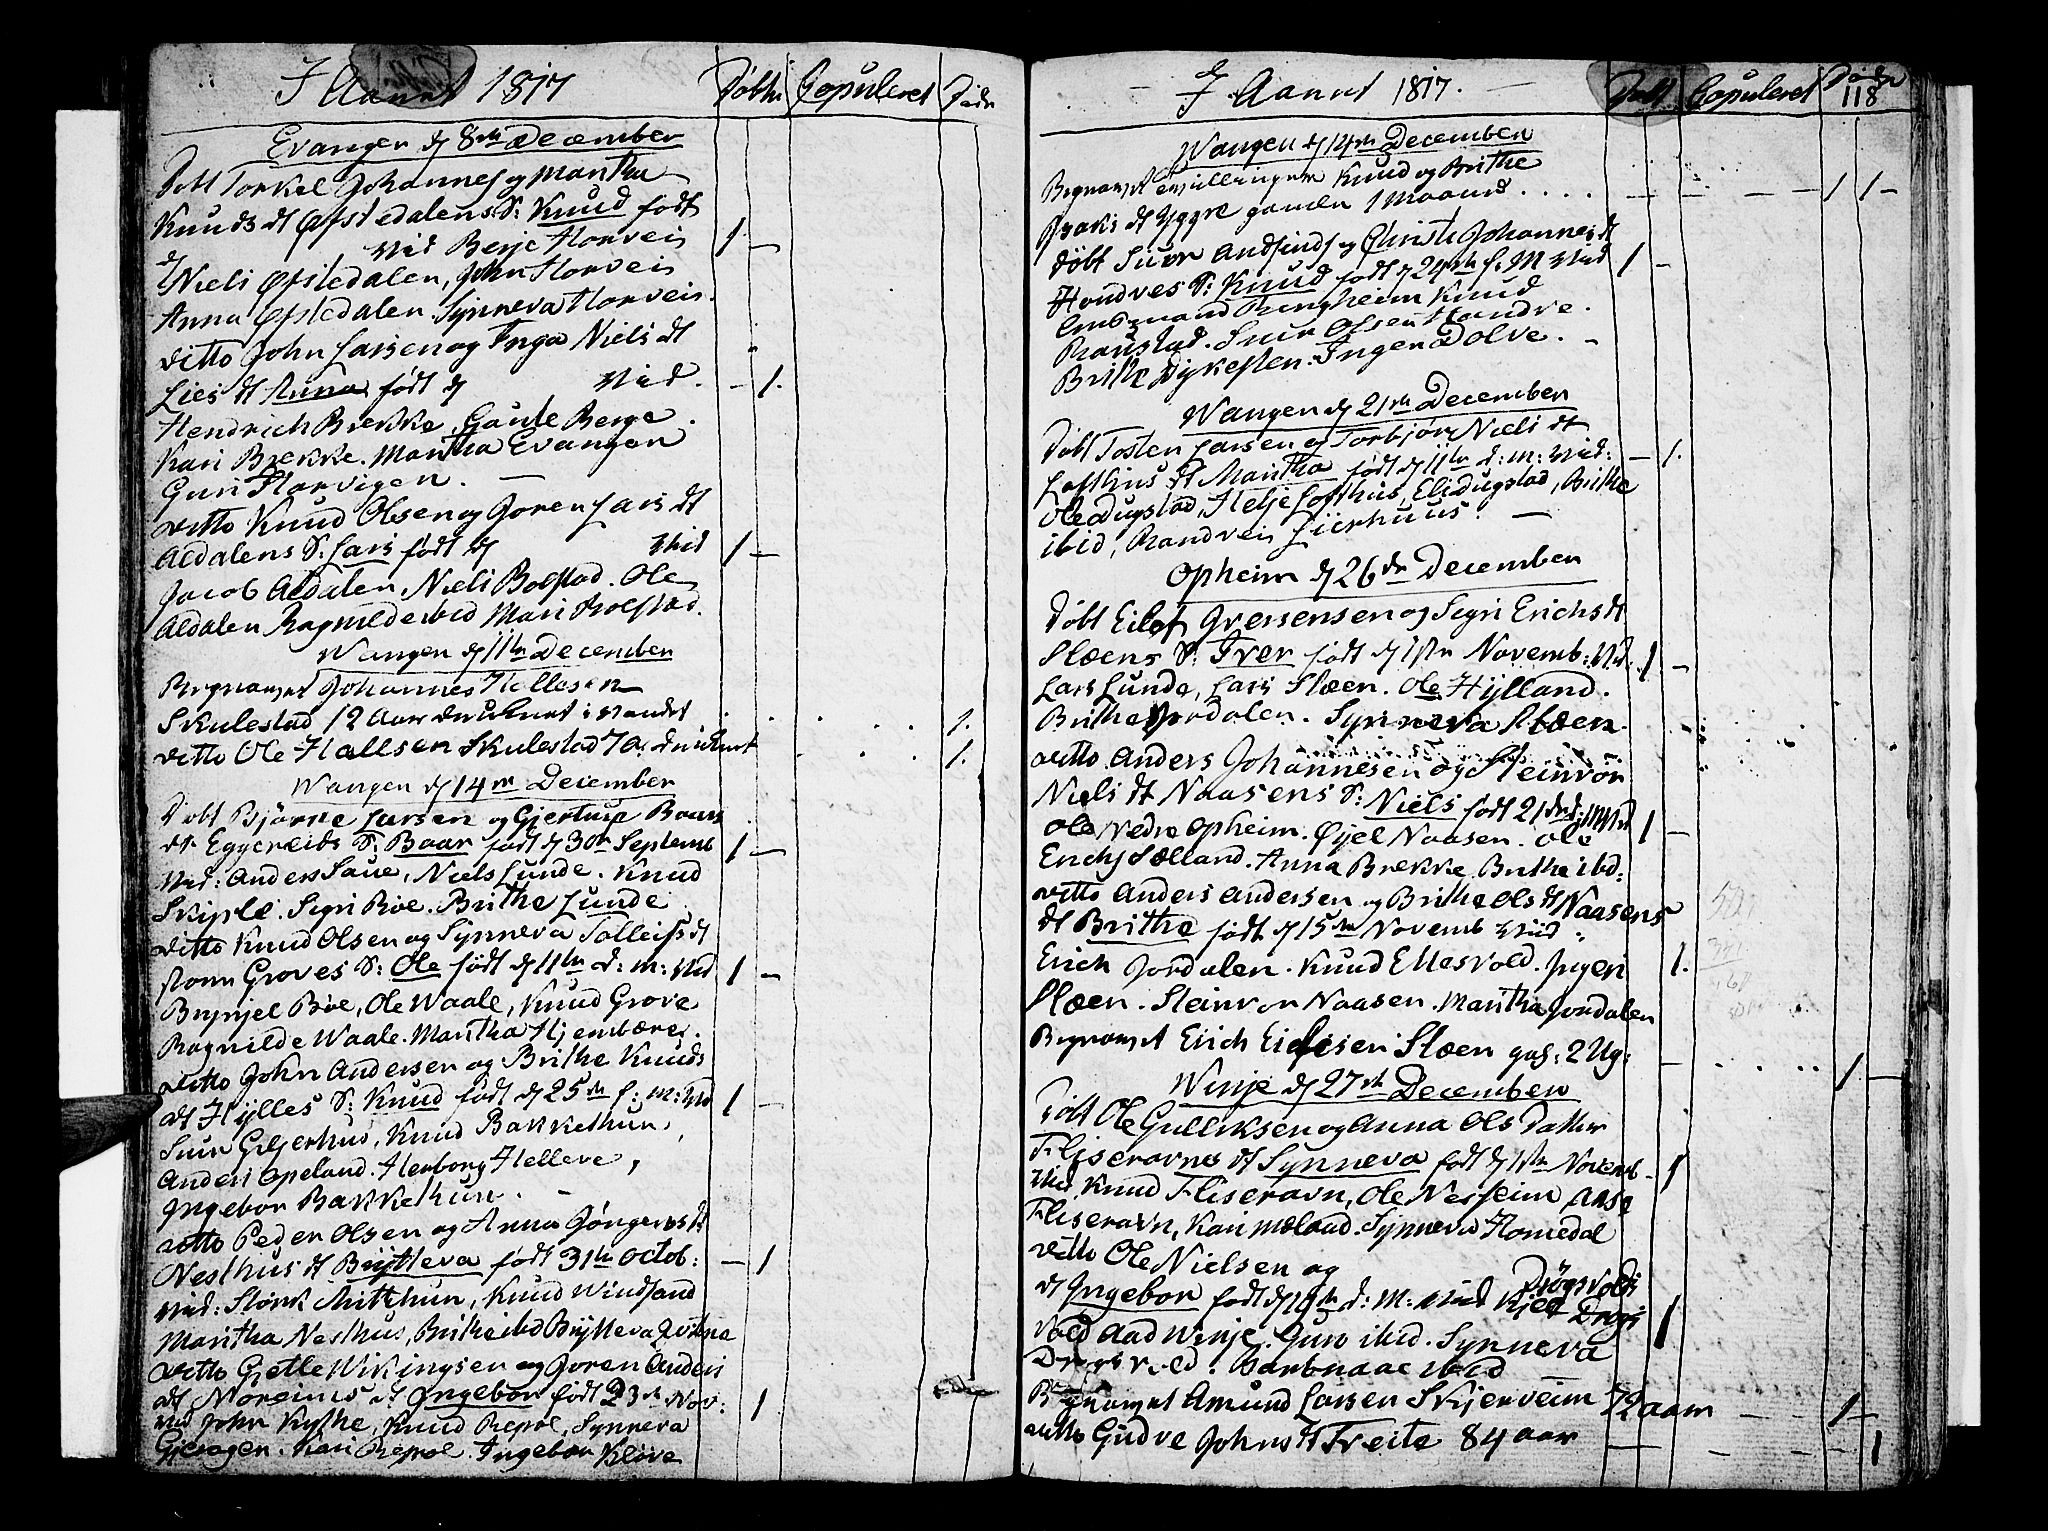 I Aaret 1817 Døbte Copuleret Døde
Evanger d 8de December
Døbt Torkel Johannes og Martha
Knuds dt Øfstedalens S: Knud født
d vid Berje Horvei
Niels Øfstedalen, John Horvei
Anna Øfstedalen Synneva Horvei.
ditto John Larsen og Inga Niels dt
Lies dt Anna født d vid.
Hendrich Brekke, Gaute Berge
Kari Brekke. Martha Evanger
Guri Horvigen.
ditto Knud Olsen og Joren Lars dt
Aldalens S: Lars født d vid 1
Jacob Aldalen, Niels Bolstad. Ole
Aldalen Ragnilde ibid Mari Bolstad.
Wangen d 11te December
Begravet Johannes Hellesen
Skulestad 12 Aar druknet i vandet 1.
ditto Ole Hallsen Skulestad 7 a: druknet 1.
Wangen d 14de December
Døbt Bjørne Larsen og Gjertrup Baars
dt Eggereids S: Baar født d 30te Septemb 1
vid: Anders Saue, Niels Lunde. Knud
Skiple. Sigri Røe. Brithe Lunde
ditto Knud Olsen og Synneva Tolleifs dt
Groves S: Ole født d 11te d: m: vid 1
Brynjel Bøe, Ole Waale, Knud Grove
Ragnilde Waale. Martha Hjembære.
ditto John Andersen og Brithe Knuds
dt Hylles S: Knud født d 25de f: m: vid 1
Siur Giljerhus, Knud Bakkethun,
Anders Opeland. Herborg Helleve,
Ingebor Bakkethun.
ditto Peder Olsen og Anna Jøngers dt
Nesthus dt Brytteva født 31te Octob: 1
vid: Størk Mitthun, Knud Windsand
Martha Nesthus, Brithe ibid Brytteva
ditto Gjetle Wikingsen og Joren Anders
dt Moreims dt Ingebor født 23de Nov: 1
vid John Kythe, Knud Repol, Synneva
Gjeragen. Kari Repol. Ingebor Kløve
I Aaret 1817. Døbt Copuleret Døde
118
Wangen d 14de December
Begravet tvillinger Knud og Brithe
dt Ygre gamle 1 Maaned 1 1
Døbt Siur Andfinds og Christi Johannes dt
Hondves S: Knud født d 24de f. M vid 1
Ringheim Knud
Raustad. Siur Olsen Hondve.
Brithe Dykesten. Inger Dolve.
Wangen d 21de December
Døbt Tosten Larsen og Torbjør Niels dt
Lofthus dt Martha født d 11te d: m: vid: 1.
Ole Dugstad, Helje Lofthus, Eli Dugstad, Brithe
ibid, Randvei Lierhuus.
Opheim d 26de December
Døbt Eilef Gressensen og Sigri Erichs dt
Slæens S: Iver født d 1ste Novemb: vid. 1
Lars Lunde, Lars Slæen. Ole Hylland.
Brithe Jordalen. Synneva Slæen.
ditto Anders Johannesen og Steinvor
Niels dt Naasens S: Niels født 21de d: M vid 1
Ole Nedre Opheim. Øjel Naasen. Ole
Erichs Sælland. Anna Brekke. Brithe ibd:
ditto Anders Andersen og Brithe Ols dt Naasens
dt Brithe født d 15de Novemb vid
Erich Jordalen. Knud Ellesvold. Ingeri 1.
Slæen. Steinvor Naasen. Martha Jordalen
Begravet Erich Eilefsen Slæen gaf: 2 Ug: 1
Winje d 27de December
Døbt Ole Gulleksen og Anna Ols Datter
Fliseravns dt Synneva født d 1ste Novemb 1
vid Knud Fliseravn, Ole Nesheim Aase
Fliseravn, Kari Mæland. Synneva Homedal
ditto Ole Nielsen og Drøgsvolds
dt Ingebor født d 19de d: M: vid Kjel Drøgs
vold Aad Winje. Guro ibid. Synneva 1
Drøgsvold. ibid
Begravet Amund Larsen Skjerveim 72 aar 1
ditto Gudve Johns dt Treite 84 aar 1